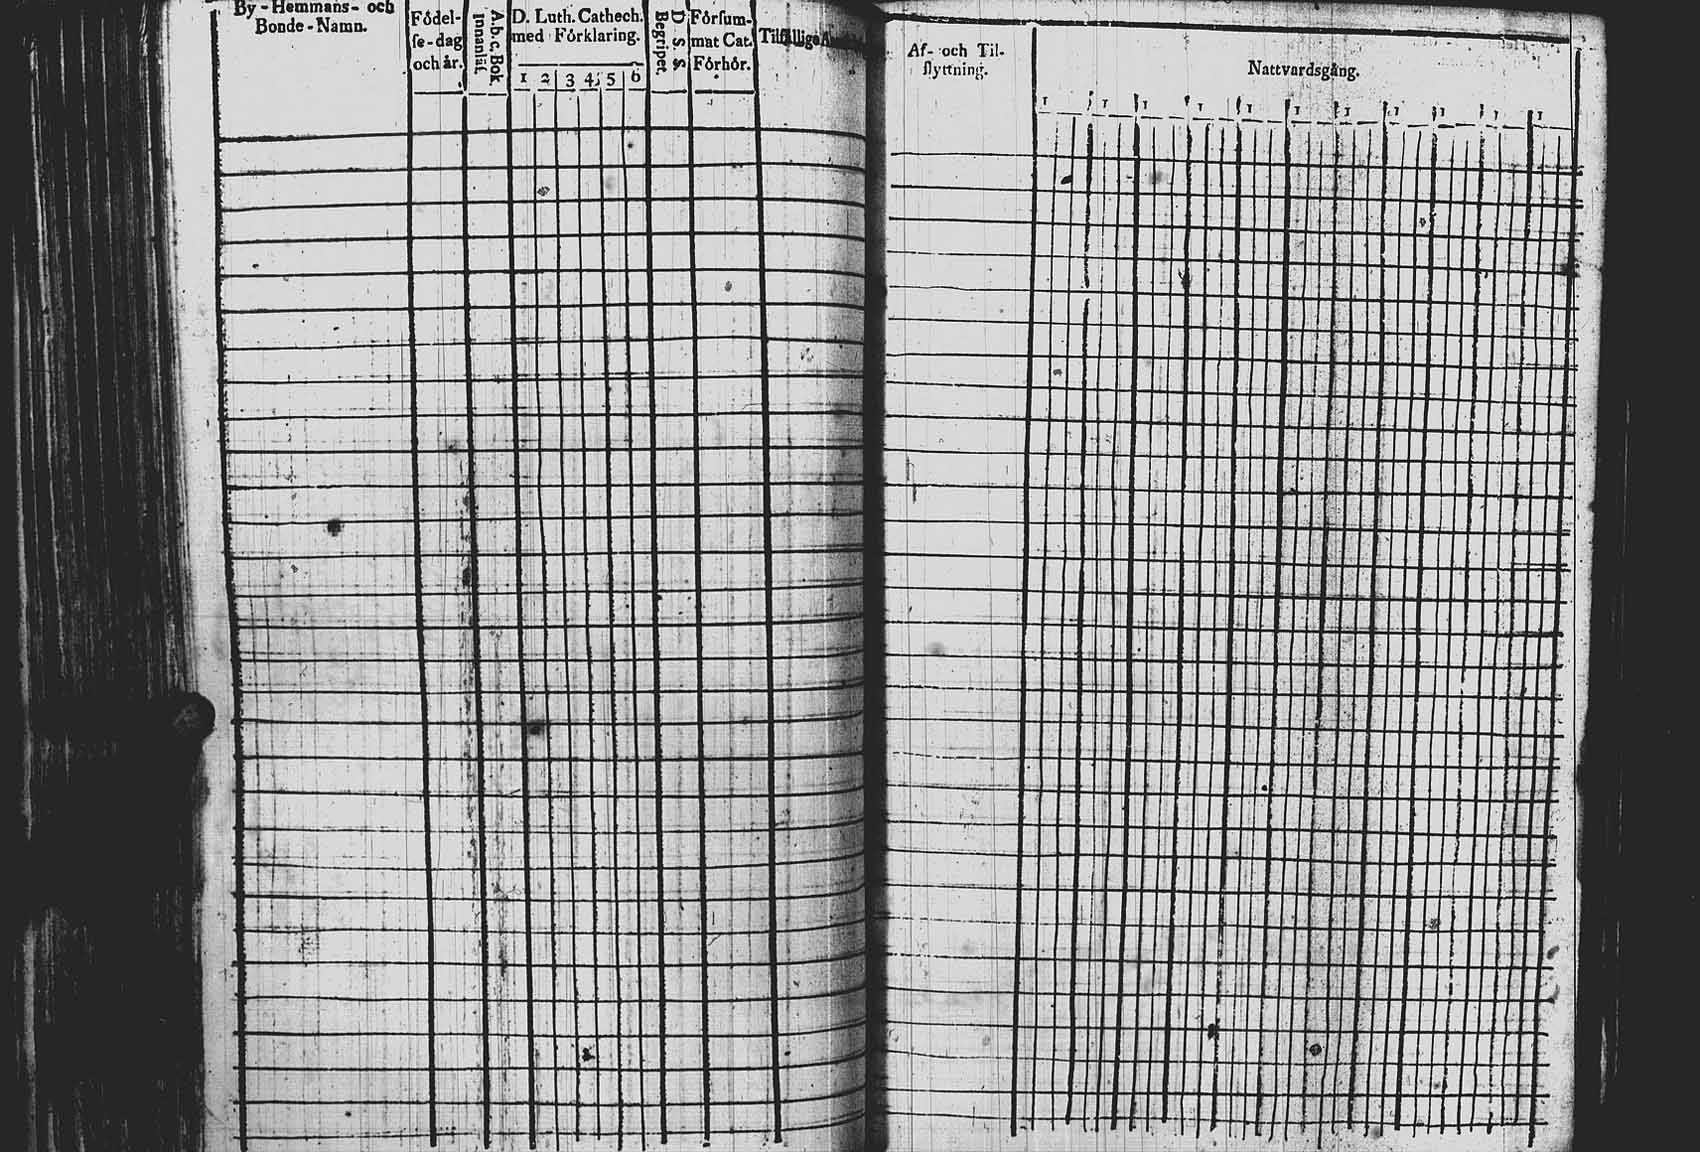 By - Hemmans- och
Bonde - Namn.
Födel-
se-dag
och år.
A.b.c. Bok
innanläs.
D. Luth. Cathech.
med Förklaring.
1 2 3 4 5 6
D. S. S.
Begripet.
Försum-
mat Cat.
Förhör.
Tilfällige
Af- och Til-
flyttning.
Nattvardsgång.
1 1 1 1 1 1 1 1 1 1 1